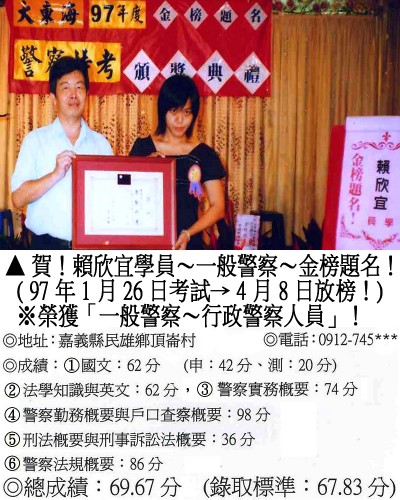 大東海97年度 金榜題名
警察特考 頒獎典禮
賴欣宜 學員
金榜題名!
▲賀!賴欣宜學員~一般警察~金榜題名!
(97年1月26日考試→4月8日放榜!)
※榮獲「一般警察~行政警察人員」!
◎地址:嘉義縣民雄鄉頂崙村 ◎電話:0912-745***
◎成績:①國文:62分 (申:42分、測:20分)
②法學知識與英文:62分,③警察實務概要:74分
④警察勤務概要與戶口查察概要:98分
⑤刑法概要與刑事訴訟法概要:36分
⑥警察法規概要:86分
◎總成績:69.67分 (錄取標準:67.83分)